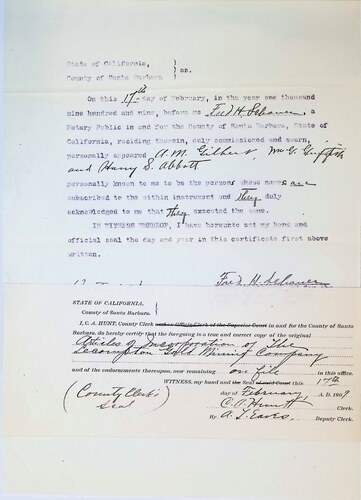 State of California,            )
                                              ) ss.
County of Santa Barbara    )
On this 17th day of February, in the year one thousand
nine hundred and nine, before me Fred H. Schauer, a
Notary Public in and for the County of Santa Barbara, State of
California, residing therein, duly commissioned and sworn,
personally appeared A.M. Gilbert, Wm. G. Griffith
and Harry S. Abbott
personally known to me to be the persons whose names are
subscribed to the within instrument and they duly
acknowledged to me that they executed the same.
IN WITNESS WHEREOF, I have hereunto set my hand and
official seal the day and year in this certificate first above
written.
Fred H. Schauer
STATE OF CALIFORNIA,
County of Santa Barbara.
I, C. A. HUNT, County Clerk and ex-Officio Clerk of the Superior Court in and for the County of Santa
Barbara, do hereby certify that the foregoing is a true and correct copy of the original
Articles of Incorporation of The
Lecompton Gold Mining Company
and of the endorsements thereon, now remaining on file in this office.
WITNESS, my hand and the Seal of said Court this 17th
(County Clerk's
Seal)
day of February, A. D. 1909.
C. A. Hunt Clerk.
By A. T. Eaves. Deputy Clerk.